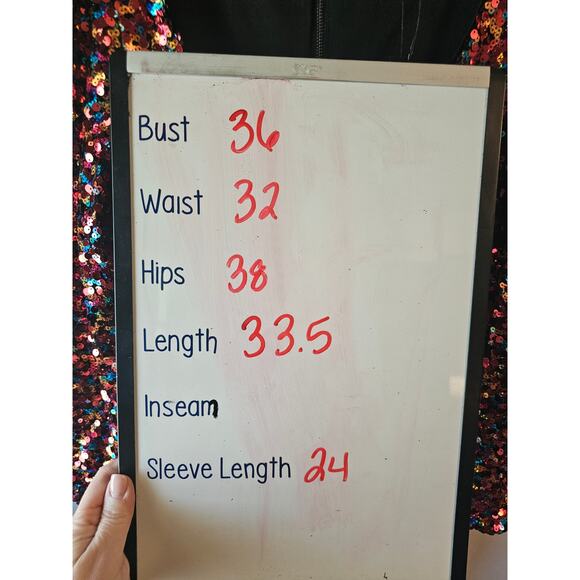 Bust 36
Waist 32
Hips 38
Length 33.5
Inseam
Sleeve Length 24